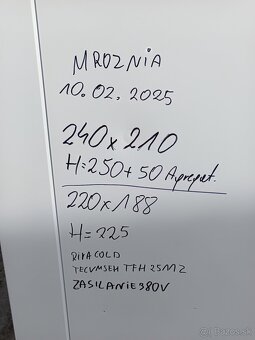 MROZNIA
10.02.2025
240x210
H=250+50 Agregat.
220x188
H=225
RIKACOLD
TECUMSEH TFH 2511Z
ZASILANIE 380V
© Bazos.sk